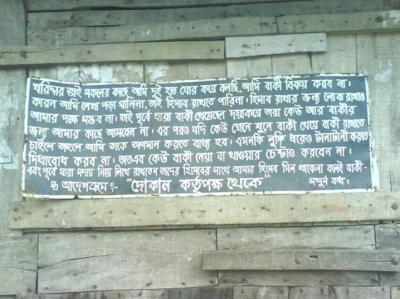 খরিদ্দার ভাই সকলের কাছে আমি দুই হাত যোর করে বলছি, আমি বাকী বিক্রয় করব না।
কারন আমি লেখা পড়া যানিনা, তাই হিসাব রাখতে পারিনা। হিসাব রাখার জন্য লোক রাখাও
আমার পক্ষে সম্ভব না। তাই পূর্বে যারা বাকী খেয়েছেন দয়াকরে তারা কেউ আর বাকীর
জন্য আমার কাছে আসবেন না। এর পরও যদি কেউ যেনে শুনে বাকী খেয়ে বাকী রাখতে
চাইলে তাহলে আমি তাকে অপমান করতে বাধ্য হব। এমনকি লুঙ্গি ধরেও টানাটানী করতে
দ্বিধাবোধ করব না। অতএব কেউ বাকী নেয়া বা খাওয়ার চেষ্টাও করবেন না।
এবং পূর্বে যারা নিয়ে লিখে রাখতেন তাদের হিসেবের সাথে আমার হিসেব মিল থাকেনা বলেই বাকী
আদেশক্রমে :- "দোকান কর্তৃপক্ষ থেকে" সম্পূর্ন বন্ধ।